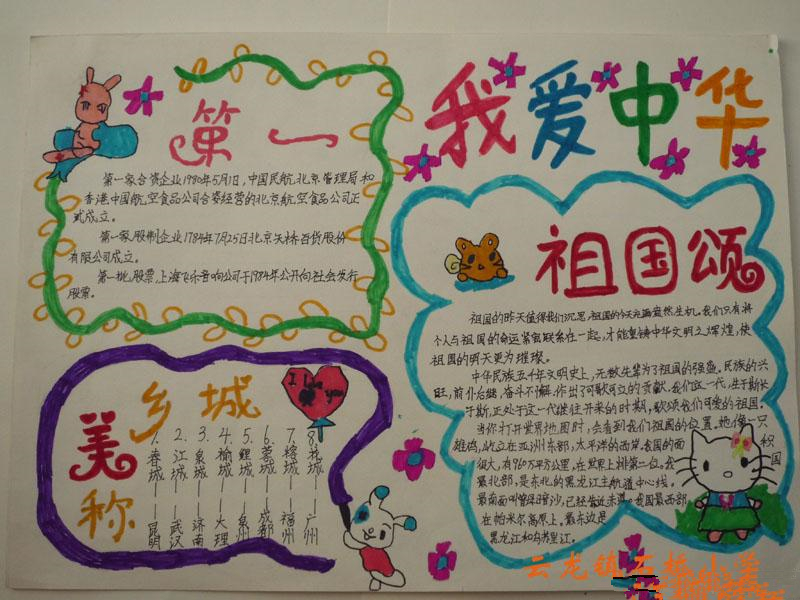 我爱中华
第一
第一家合资企业1980年5月1日,中国民航北京管理局和
香港中国航空食品公司合资经营的北京航空食品公司正
式成立。
第一家股制企业1984年7月25日北京天桥百货股份
有限公司成立。
第一批股票,上海飞乐音响公司于1984年公开向社会发行
股票。
祖国颂
祖国的昨天值得我们沉思,祖国的今天充满盎然生机。我们只有将
个人与祖国的命运紧密联系在一起,才能重铸中华文明之辉煌,使
祖国的明天更为璀璨。
中华民族五千年文明史上,无数先辈为了祖国的强盛。民族的兴
旺,前仆后继,奋斗不懈,作出了可歌可泣的贡献。我们这一代,生于斯长
于斯,正处于这一代继往开来的时期,歌颂我们可爱的祖国。
当你打开世界地图时,会看到我们祖国的位置。她像一只
雄鸡,屹立在亚洲东部,太平洋的西岸。我国的面积
很大,有960万平方公里,在世界上排第二位。我国
最北部,是东北的黑龙江主航道中心线。
最南面叫曾母暗沙,已经靠近赤道。我国最西部
在帕米尔高原上。最东边是
黑龙江和乌苏里江。
美称
乡城
1.春城——昆明
2.江城——武汉
3.泉城——济南
4.榆城——大理
5.鲤城——泉州
6.蓉城——成都
7.榕城——福州
8.花城——广州
I love you
云龙镇石桥小学